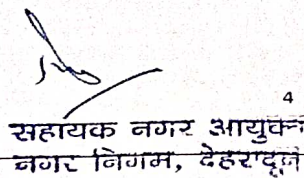 4
सहायक नगर आयुक्त
नगर निगम, देहरादून